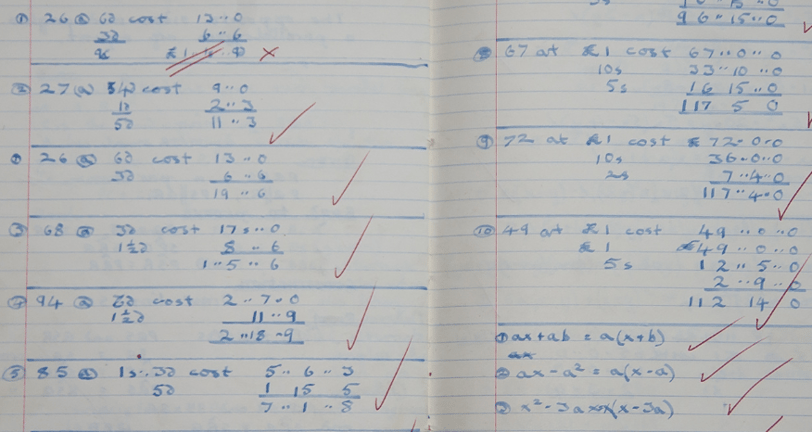 ① 26 @ 6d cost 13..0
3d 6..6
② 27 @ 4d cost 9..0
1d 2..3
5d 11..3
① 26 @ 6d cost 13..0
3d 6..6
19..6
③ 68 @ 3d cost 17s..0
1½d 8..6
1..5..6
④ 94 @ cost 2..7..0
1½d 11..9
2..18..9
⑤ 85 @ 1s..3d cost 5..6..3
5d 1 15 5
7..1..8
5s
96..15..0
67 at £1 cost 67..0..0
10s 33..10..0
5s 16 15..0
117 5 0
⑨ 72 at £1 cost £72..0..0
10s 36..0..0
2s 7..4..0
117..4..0
⑩ 49 at £1 cost 49..0..0
£1 £49..0..0
5s 12..5..0
2..9..0
112 14 0
① ax+ab = a(x+b)
② ax - a² = a(x-a)
③ x² - 3ax (x-3a)